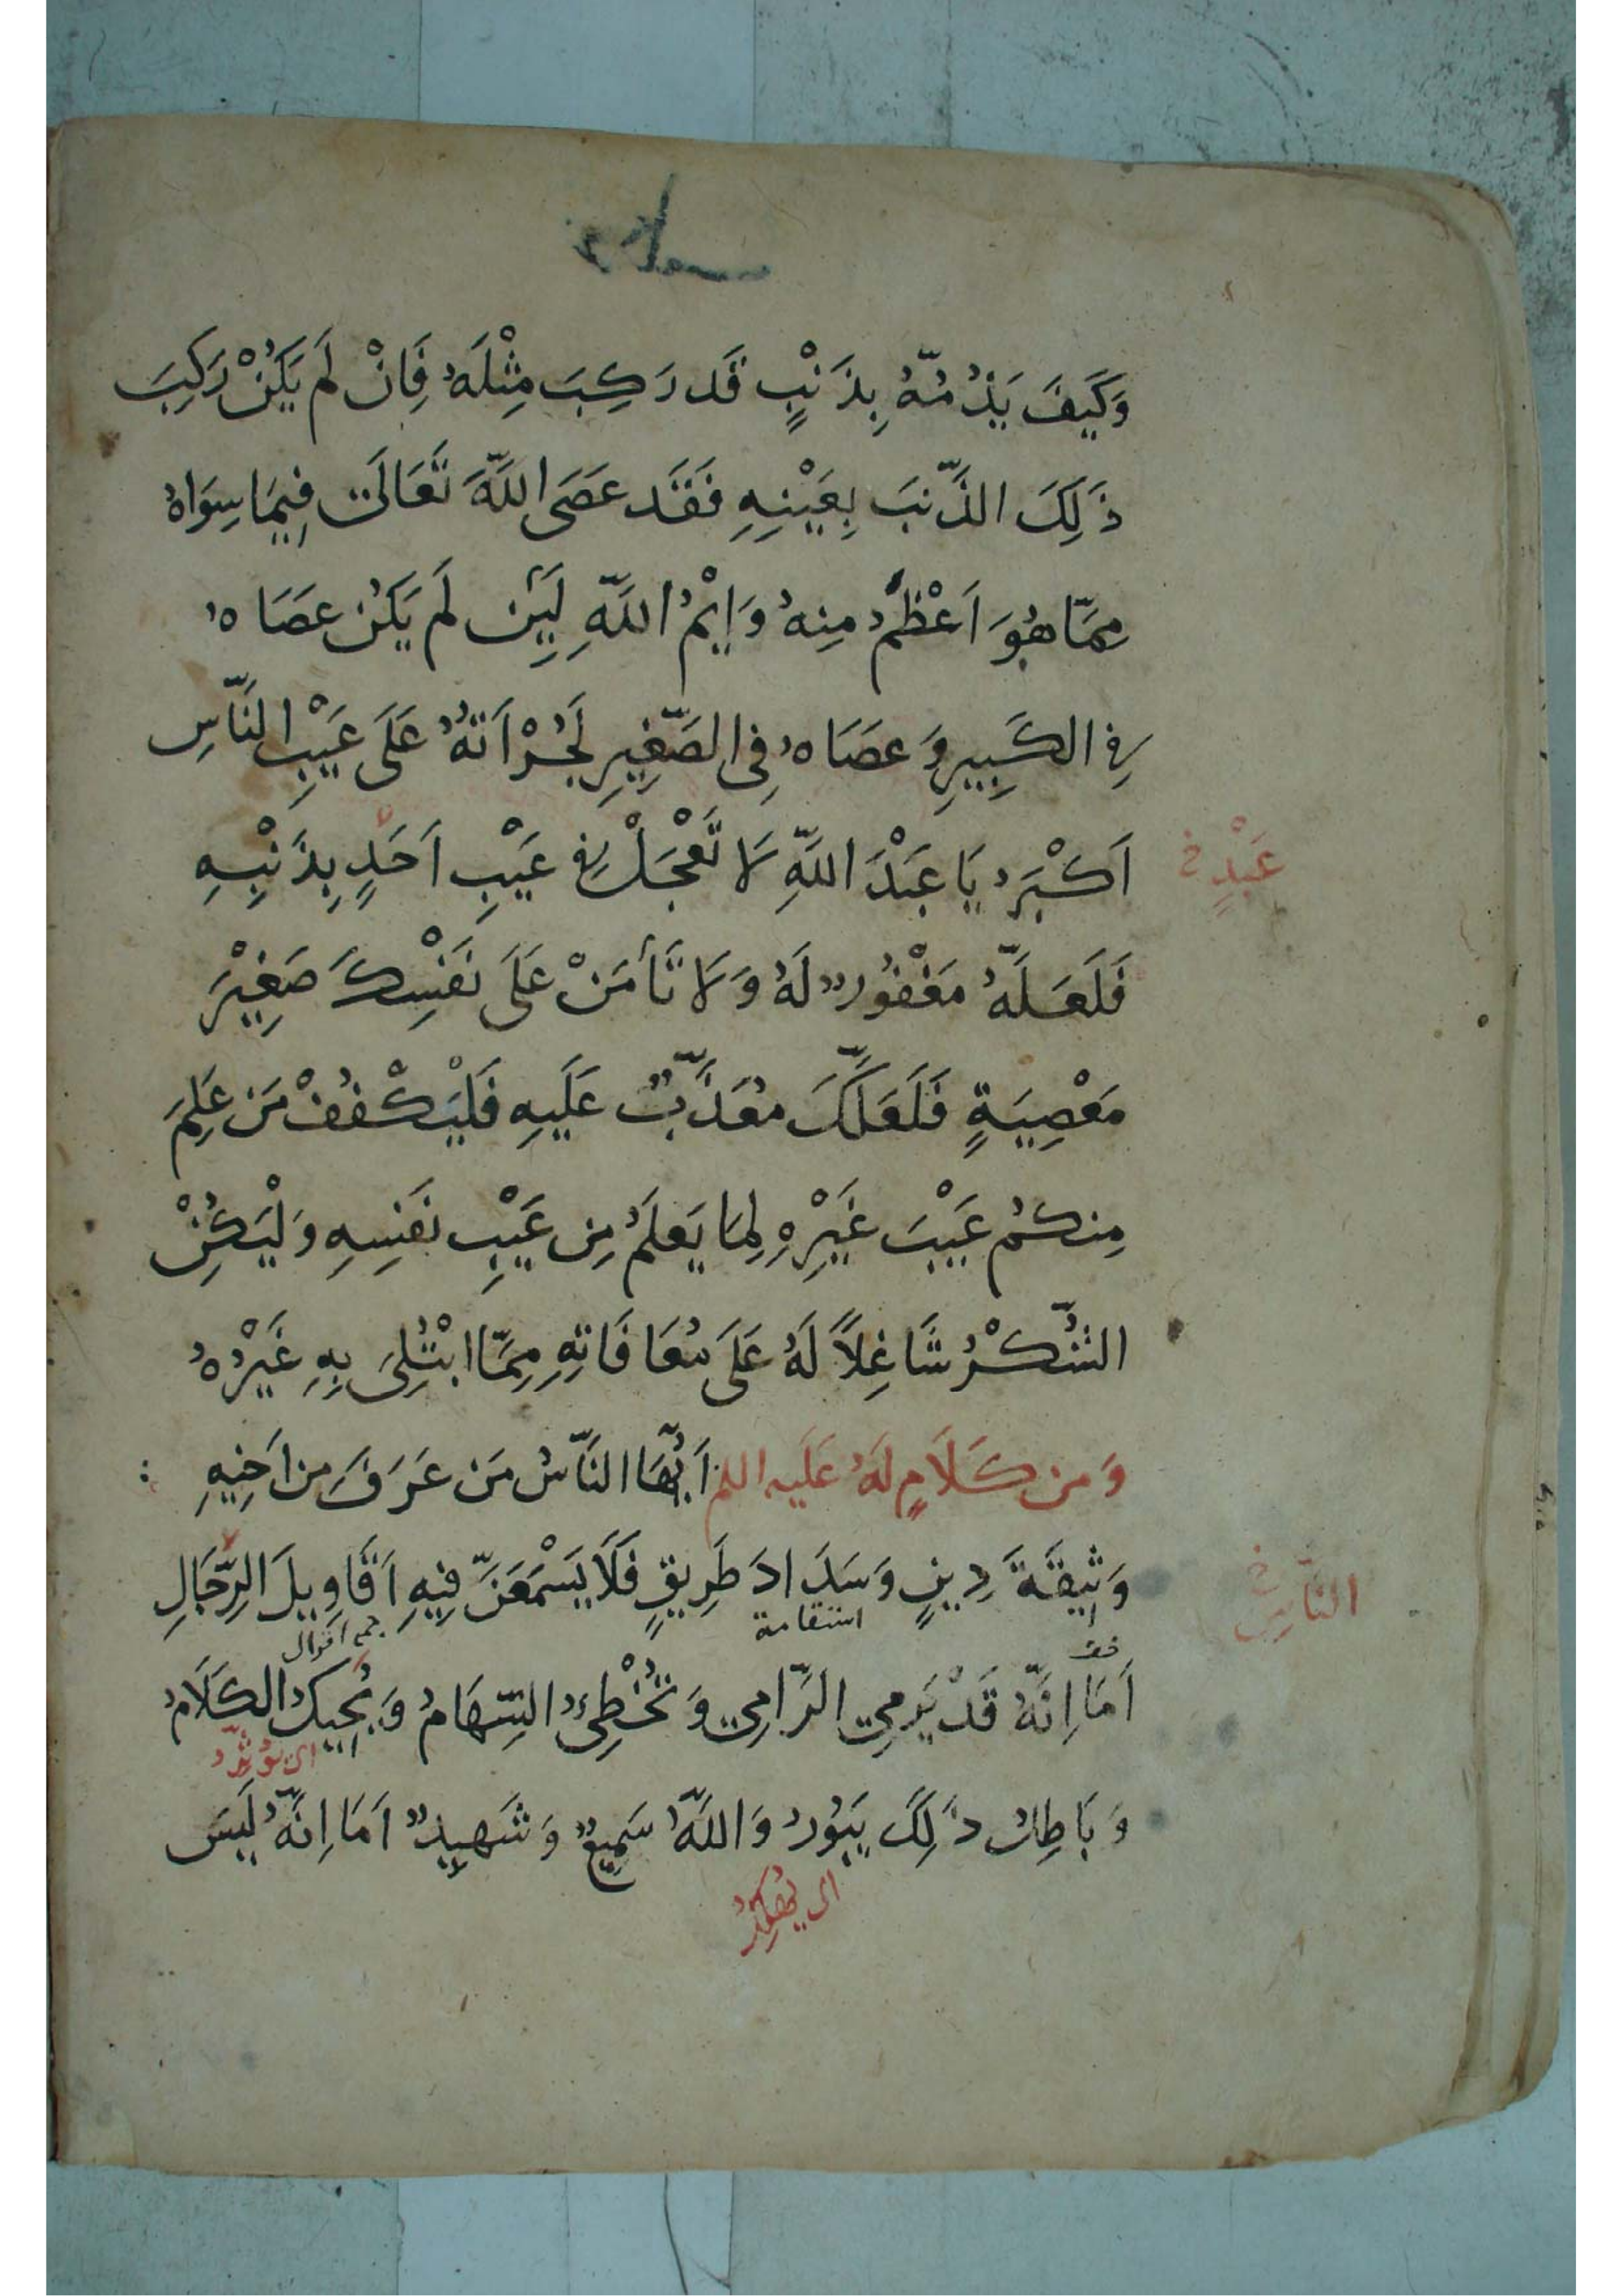 وَكَيفَ يَذُمُّهُ بِذَنْبٍ قَد رَكِبَ مِثْلَهُ فَاِنْ لَم يَكُنْ رَكِبَ
ذَلِكَ الذَّنبَ بِعَيْنِهِ فَقَد عَصَى اللَّهَ تَعَالَى فِيمَا سِوَاهُ
مِمَّا هُوَ اَعْظَمُ مِنهُ وَاَيْمُ اللَّهِ لَئِن لَم يَكُن عَصَاهُ
فِي الكَبِيرِ وَعَصَاهُ فِي الصَّغِيرِ لَجُرْاَتُهُ عَلَى عَيْبِ النَّاسِ
اَكْبَرُ يَا عَبْدَ اللَّهِ لَا تَعْجَلْ فِي عَيْبِ اَحَدٍ بِذَنْبِهِ
عَبْدٍ خ
فَلَعَلَّهُ مَغْفُورٌ لَهُ وَلَا تَأمَنْ عَلَى نَفْسِكَ صَغِيْرَ
مَعْصِيَةٍ فَلَعَلَّكَ مُعَذَّبٌ عَلَيهِ فَلْيَكْفُفْ مَن عَلِمَ
مِنكُم عَيْبَ غَيْرِهِ لِمَا يَعلَمُ مِن عَيْبِ نَفسِهِ وَلْيَكُنِ
الشُّكْرُ شَاغِلاً لَهُ عَلَى مُعَافَاتِهِ مِمَّا ابْتُلِيَ بِهِ غَيْرُهُ
وَمن كَلَامٍ لَهُ عَلَيه السلم اَيُّهَا النَّاسُ مَن عَرَفَ من اَخِيهِ
وَثِيقَةَ دِينٍ وَسَدَادَ طَرِيقٍ فَلَا يَسْمَعَنَّ فِيهِ اَقَاوِيلَ الرِّجَالِ
النَّاسِ خ
استقامة
جمع اقوال
اَمَا اِنَّهُ قَدْ يَرمِي الرَّامِي وَتُخْطِئُ السِّهَامُ وَيُحِيكُ الكَلَامُ
اى يُؤثِّرُ
وَبَاطِلُ ذَلِكَ يَبُورُ وَاللَّهُ سَمِيعٌ وَشَهِيدٌ اَمَا اِنَّهُ لَيسَ